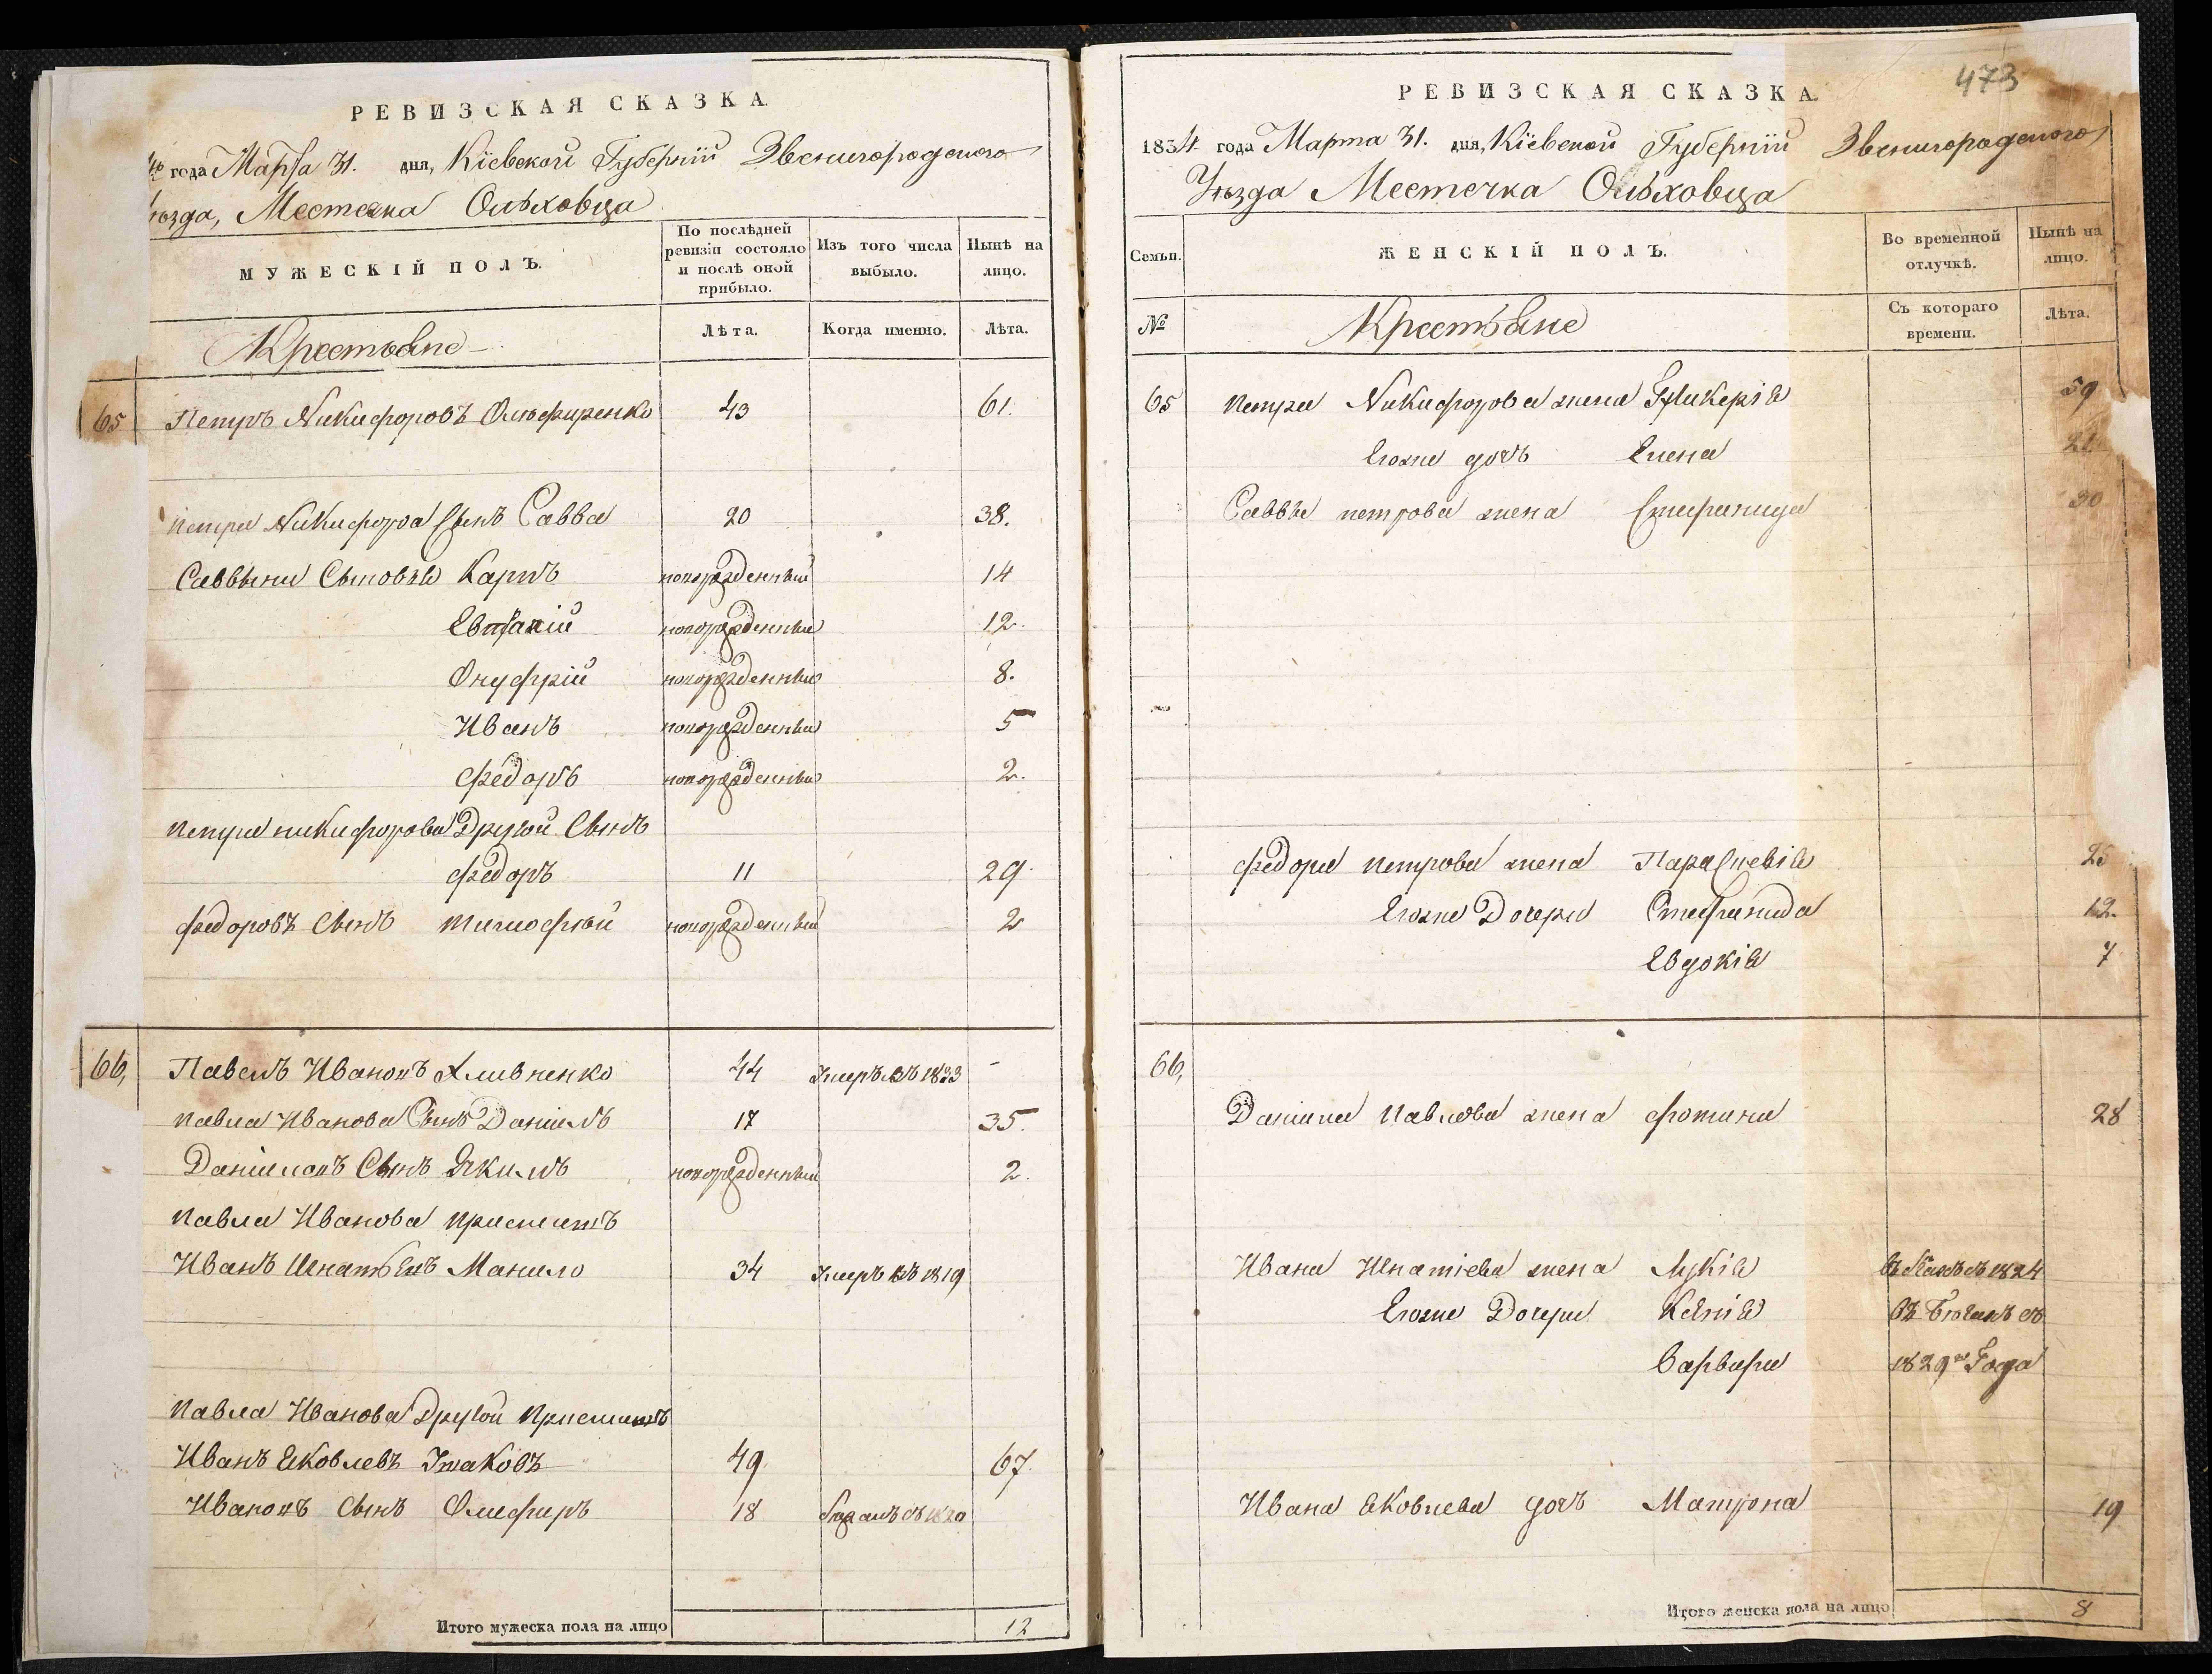 РЕВИЗСКАЯ СКАЗКА.
года Марта 31. дня, Кіевской Губерніи Звенигородского
Уѣзда, Местечка Ольховца
МУЖЕСКІЙ ПОЛЪ.
По послѣдней ревизіи состояло и послѣ оной прибыло.
Изъ того числа выбыло.
Нынѣ на лицо.
Крестьяне
Лѣта.
Когда именно.
Лѣта.
65 Петръ Никифоровъ Ольфиренко 43 61.
Петра Никифорова Сынъ Савва 20 38.
Саввыни Сыновья Карпъ новорожденный 14
Евтапій новорожденный 12.
Онуфрій новорожденный 8.
Иванъ новорожденный 5
Федоръ новорожденный 2.
Петра Никифорова Другой Сынъ
Федоръ 11 29.
Федоровъ Сынъ Тимофѣй новорожденный 2
66, Павелъ Ивановъ Хливненко 44 Умеръ въ 1823 -
Павла Иванова Сынъ Даніилъ 17 35.
Даніиловъ Сынъ Якимъ новорожденный 2.
Павла Иванова Приемышъ
Иванъ Игнатьевъ Манило 34 Умеръ въ 1819
Павла Иванова Другой Приемышъ
Иванъ Яковлевъ 49 67.
Ивановъ Сынъ Олифиръ 18
Итого мужеска пола на лицо 12
473
РЕВИЗСКАЯ СКАЗКА.
1834 года Марта 31. дня, Кіевской Губерніи Звенигородского
Уѣзда Местечка Ольховца
Семьи.
ЖЕНСКІЙ ПОЛЪ.
Во временной отлучкѣ.
Нынѣ на лицо.
№
Крестьяне
Съ котораго времени.
Лѣта.
65 Петра Никифорова жена Гликерія 59
Егоже дочь Елена
Саввы Петрова жена Стефанида 30
Федора Петрова жена Параскевія 25
Егоже Дочери Стефанида 12.
Евдокія 7
66,
Даніила Павлова жена Фотина 28
Ивана Игнатіева жена Лукія 1824
Егоже Дочери Ксенія въ съ
Варвара 1829го Года
Ивана Яковлева дочь Матрона 19
Итого женска пола на лицо 8